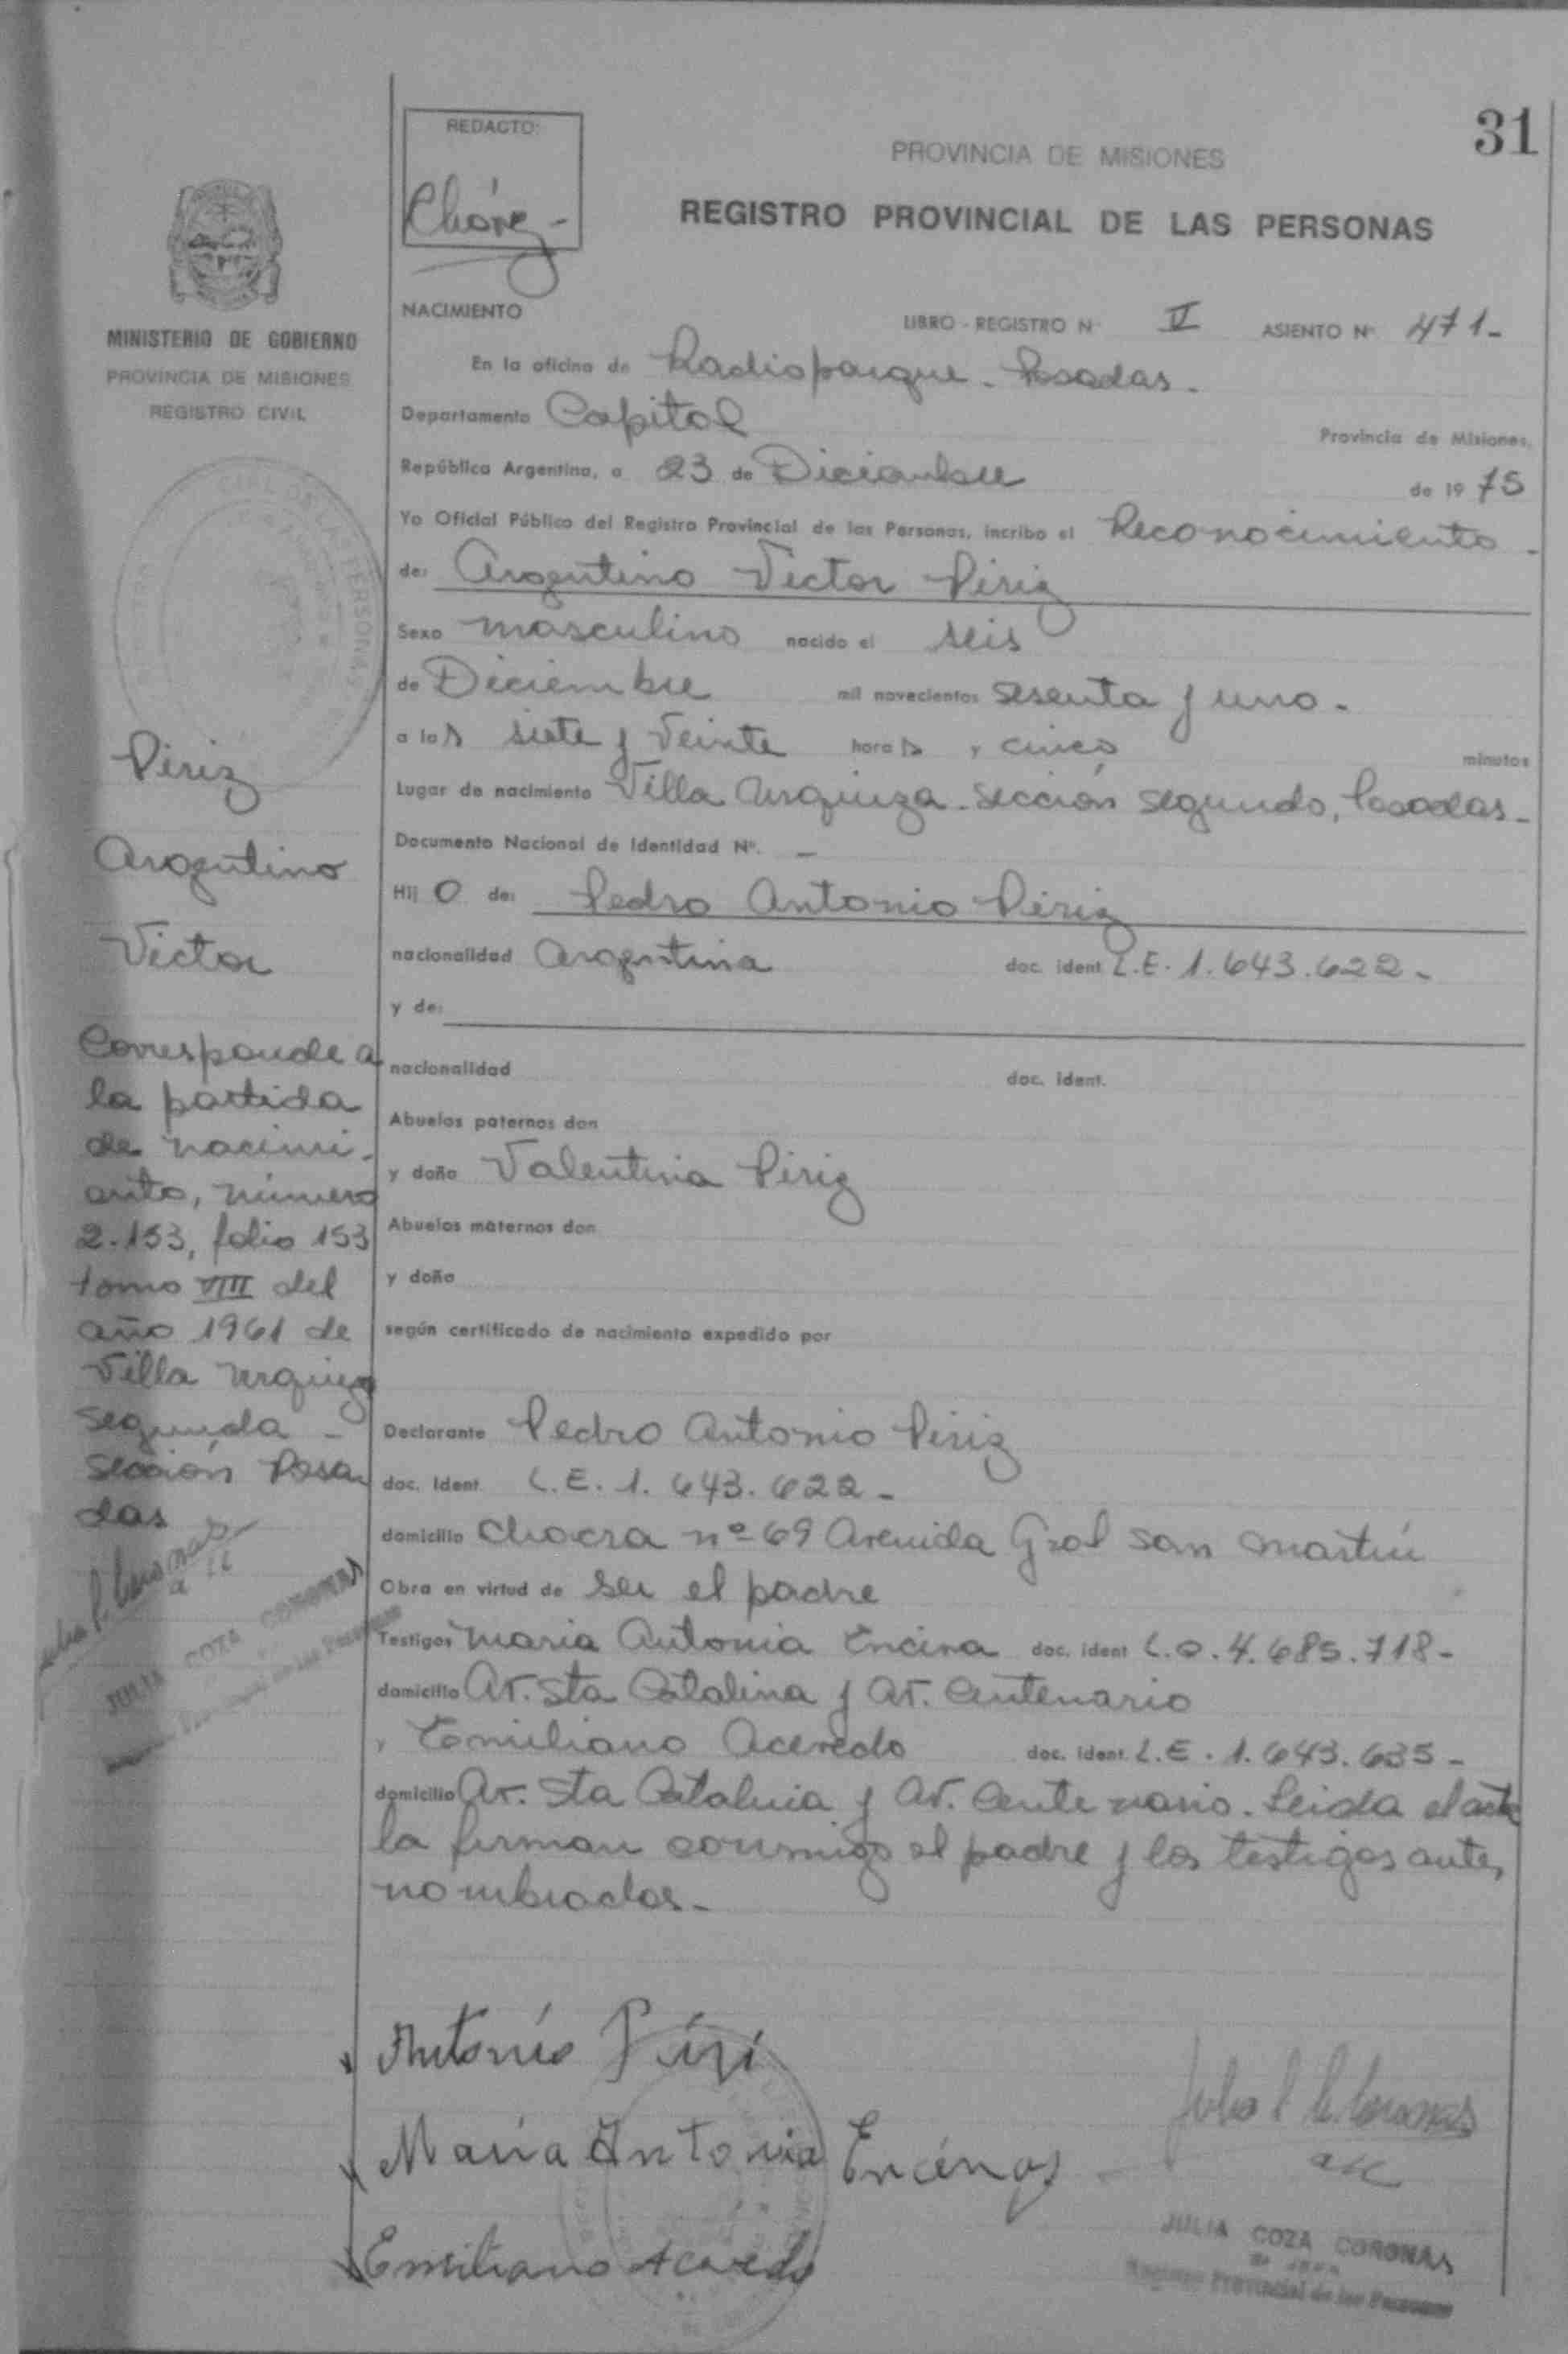 31
REDACTO:
Chávez -
PROVINCIA DE MISIONES
REGISTRO PROVINCIAL DE LAS PERSONAS
MINISTERIO DE GOBIERNO
PROVINCIA DE MISIONES
REGISTRO CIVIL
NACIMIENTO
LIBRO - REGISTRO Nº V ASIENTO Nº 471-
En la oficina de Radioparque - Posadas -
Departamento Capital Provincia de Misiones,
República Argentina, a 23 de Diciembre de 1975
Yo Oficial Público del Registro Provincial de las Personas, incribo el Reconocimiento -
de: Argentino Victor Piriz
Sexo masculino nacido el seis
de Diciembre mil novecientos sesenta y uno -
a las siete y veinte horas y cinco minutos
Lugar de nacimiento Villa Urquiza - sección segundo, Posadas -
Documento Nacional de Identidad Nº. -
Hijo de: Pedro Antonio Piriz
nacionalidad Argentina doc. ident. L.E. 1.643.622 -
y de:
nacionalidad doc. ident.
Abuelos paternos don
y doña Valentina Piriz
Abuelos maternos don
y doña
según certificado de nacimiento expedido por
Declarante Pedro Antonio Piriz
doc. ident. L.E. 1.643.622 -
domicilio Chacra nº 69 Avenida Gral San Martín
Obra en virtud de ser el padre
Testigos Maria Antonia Encina doc. ident L.C. 4.685.718 -
domicilio Av. Sta Catalina y Av. Centenario
y Emiliano Acevedo doc. ident. L.E. 1.643.635 -
domicilio Av. Sta Catalina y Av. Centenario. Leida el acta
la firman conmigo el padre y los testigos antes
nombrados -
Piriz
Argentino
Victor
Corresponde a
la partida
de nacimi-
ento, número
2.153, folio 153
tomo VIII del
año 1961 de
Villa Urquiza
segunda -
sección Posa
das
JULIA COZA CORONAS
Antonio Piri
María Antonia Encinas
Emiliano Acevedo
JULIA COZA CORONAS
Registro Provincial de las Personas